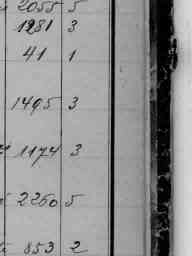 2055 5
1281 3
41 1
1495 3
1174 3
2260 5
853 2